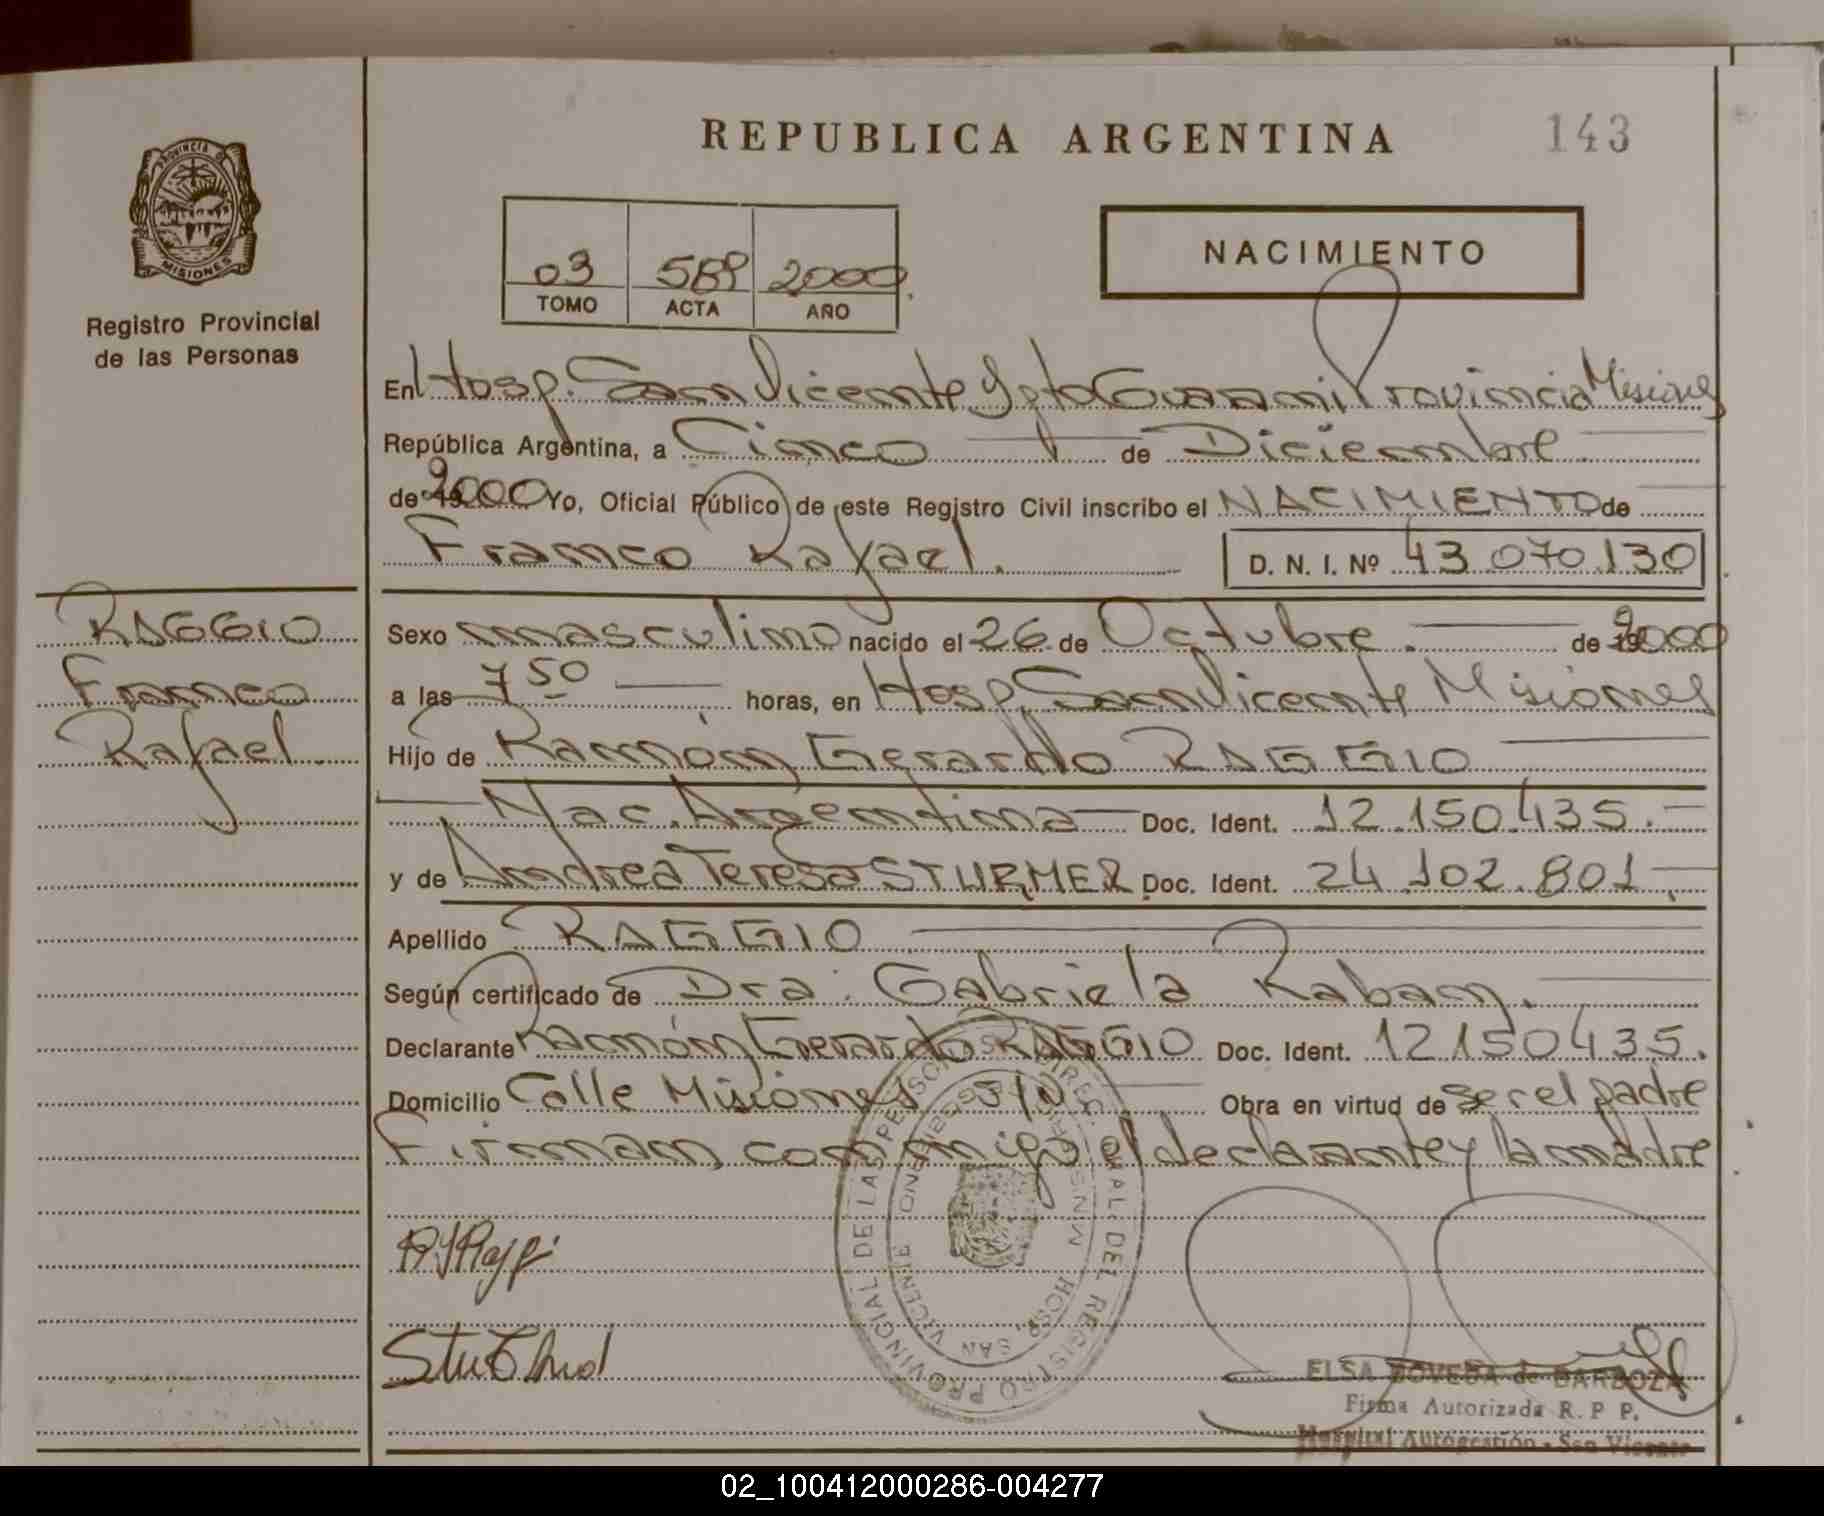 REPUBLICA ARGENTINA
143
PROVINCIA D
MISIONES
Registro Provincial
de las Personas
03
2000
TOMO
ACTA
AÑO
NACIMIENTO
En Hosp. San Vicente Dpto Guaraní Provincia Misiones
República Argentina, a Cinco de Diciembre
de 19 2000 Yo, Oficial Público de este Registro Civil inscribo el NACIMIENTO de
Franco Rafael. D. N. I. Nº 43 070 130
RAGGIO
Franco
Rafael
Sexo masculino nacido el 26 de Octubre. de 19 2000
a las 7 50 horas, en Hosp. San Vicente Misiones
Hijo de Ramón Gerardo RAGGIO
Nac. Argentina Doc. Ident. 12.150.435.-
y de Andrea Teresa STURMER Doc. Ident. 24.102.801.-
Apellido RAGGIO
Según certificado de Dra. Gabriela Raban.
Declarante Ramón Gerardo RAGGIO Doc. Ident. 12150435.
Domicilio Calle Misiones S/N Obra en virtud de ser el padre
Firman conmigo el declarante y la madre
PROVINCIAL DE LAS PERSONAS
DEL REGISTRO
HOSP. SAN VICENTE
ELSA DOVEDA de BARBOZA
Firma Autorizada R. P P.
Hospital Autogestión - San Vicente
02_100412000286-004277